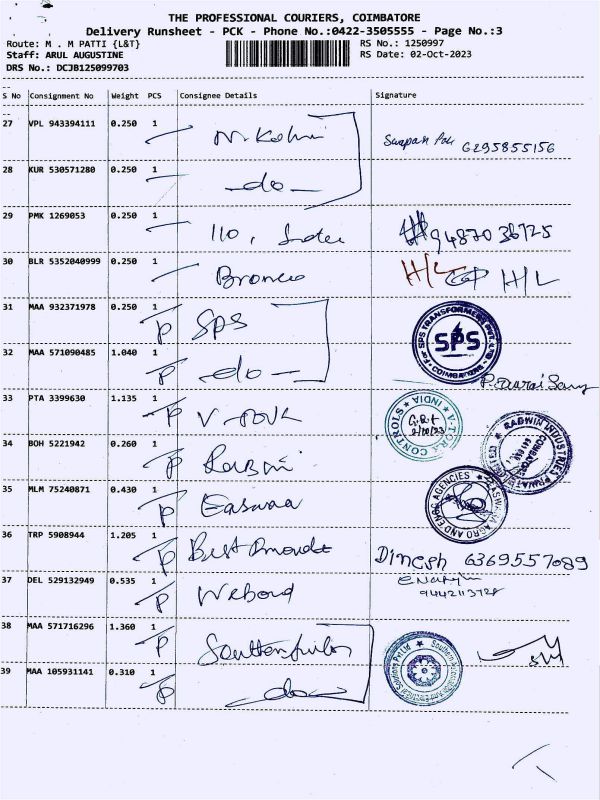 THE PROFESSIONAL COURIERS, COIMBATORE
Delivery Runsheet - PCK - Phone No.:0422-3505555 - Page No.:3
Route: M . M PATTI {L&T}
RS No.: 1250997
Staff: ARUL AUGUSTINE
RS Date: 02-Oct-2023
DRS No.: DCJB125099703
S No Consignment No Weight PCS Consignee Details Signature
27 VPL 943394111 0.250 1
6295855156
28 KUR 530571280 0.250 1 -do-
29 PMK 1269053 0.250 1 110,
9487036725
30 BLR 5352040999 0.250 1 Bronco H/L H/L
31 MAA 932371978 0.250 1 SPS
For SPS TRANSFORMERS PVT. LTD. COIMBATORE
SPS
32 MAA 571090485 1.040 1 -do-
33 PTA 3399630 1.135 1
V-TORK CONTROLS INDIA
2/10/23
RADWIN INDUSTRIES PRIVATE LIMITED
COIMBATORE
34 BOH 5221942 0.260 1
35 MLM 75240871 0.430 1
AGRO AND ENGG AGENCIES
36 TRP 5908944 1.205 1 Dinesh 6369557089
37 DEL 529132949 0.535 1
38 MAA 571716296 1.360 1
39 MAA 105931141 0.310 1 -do-